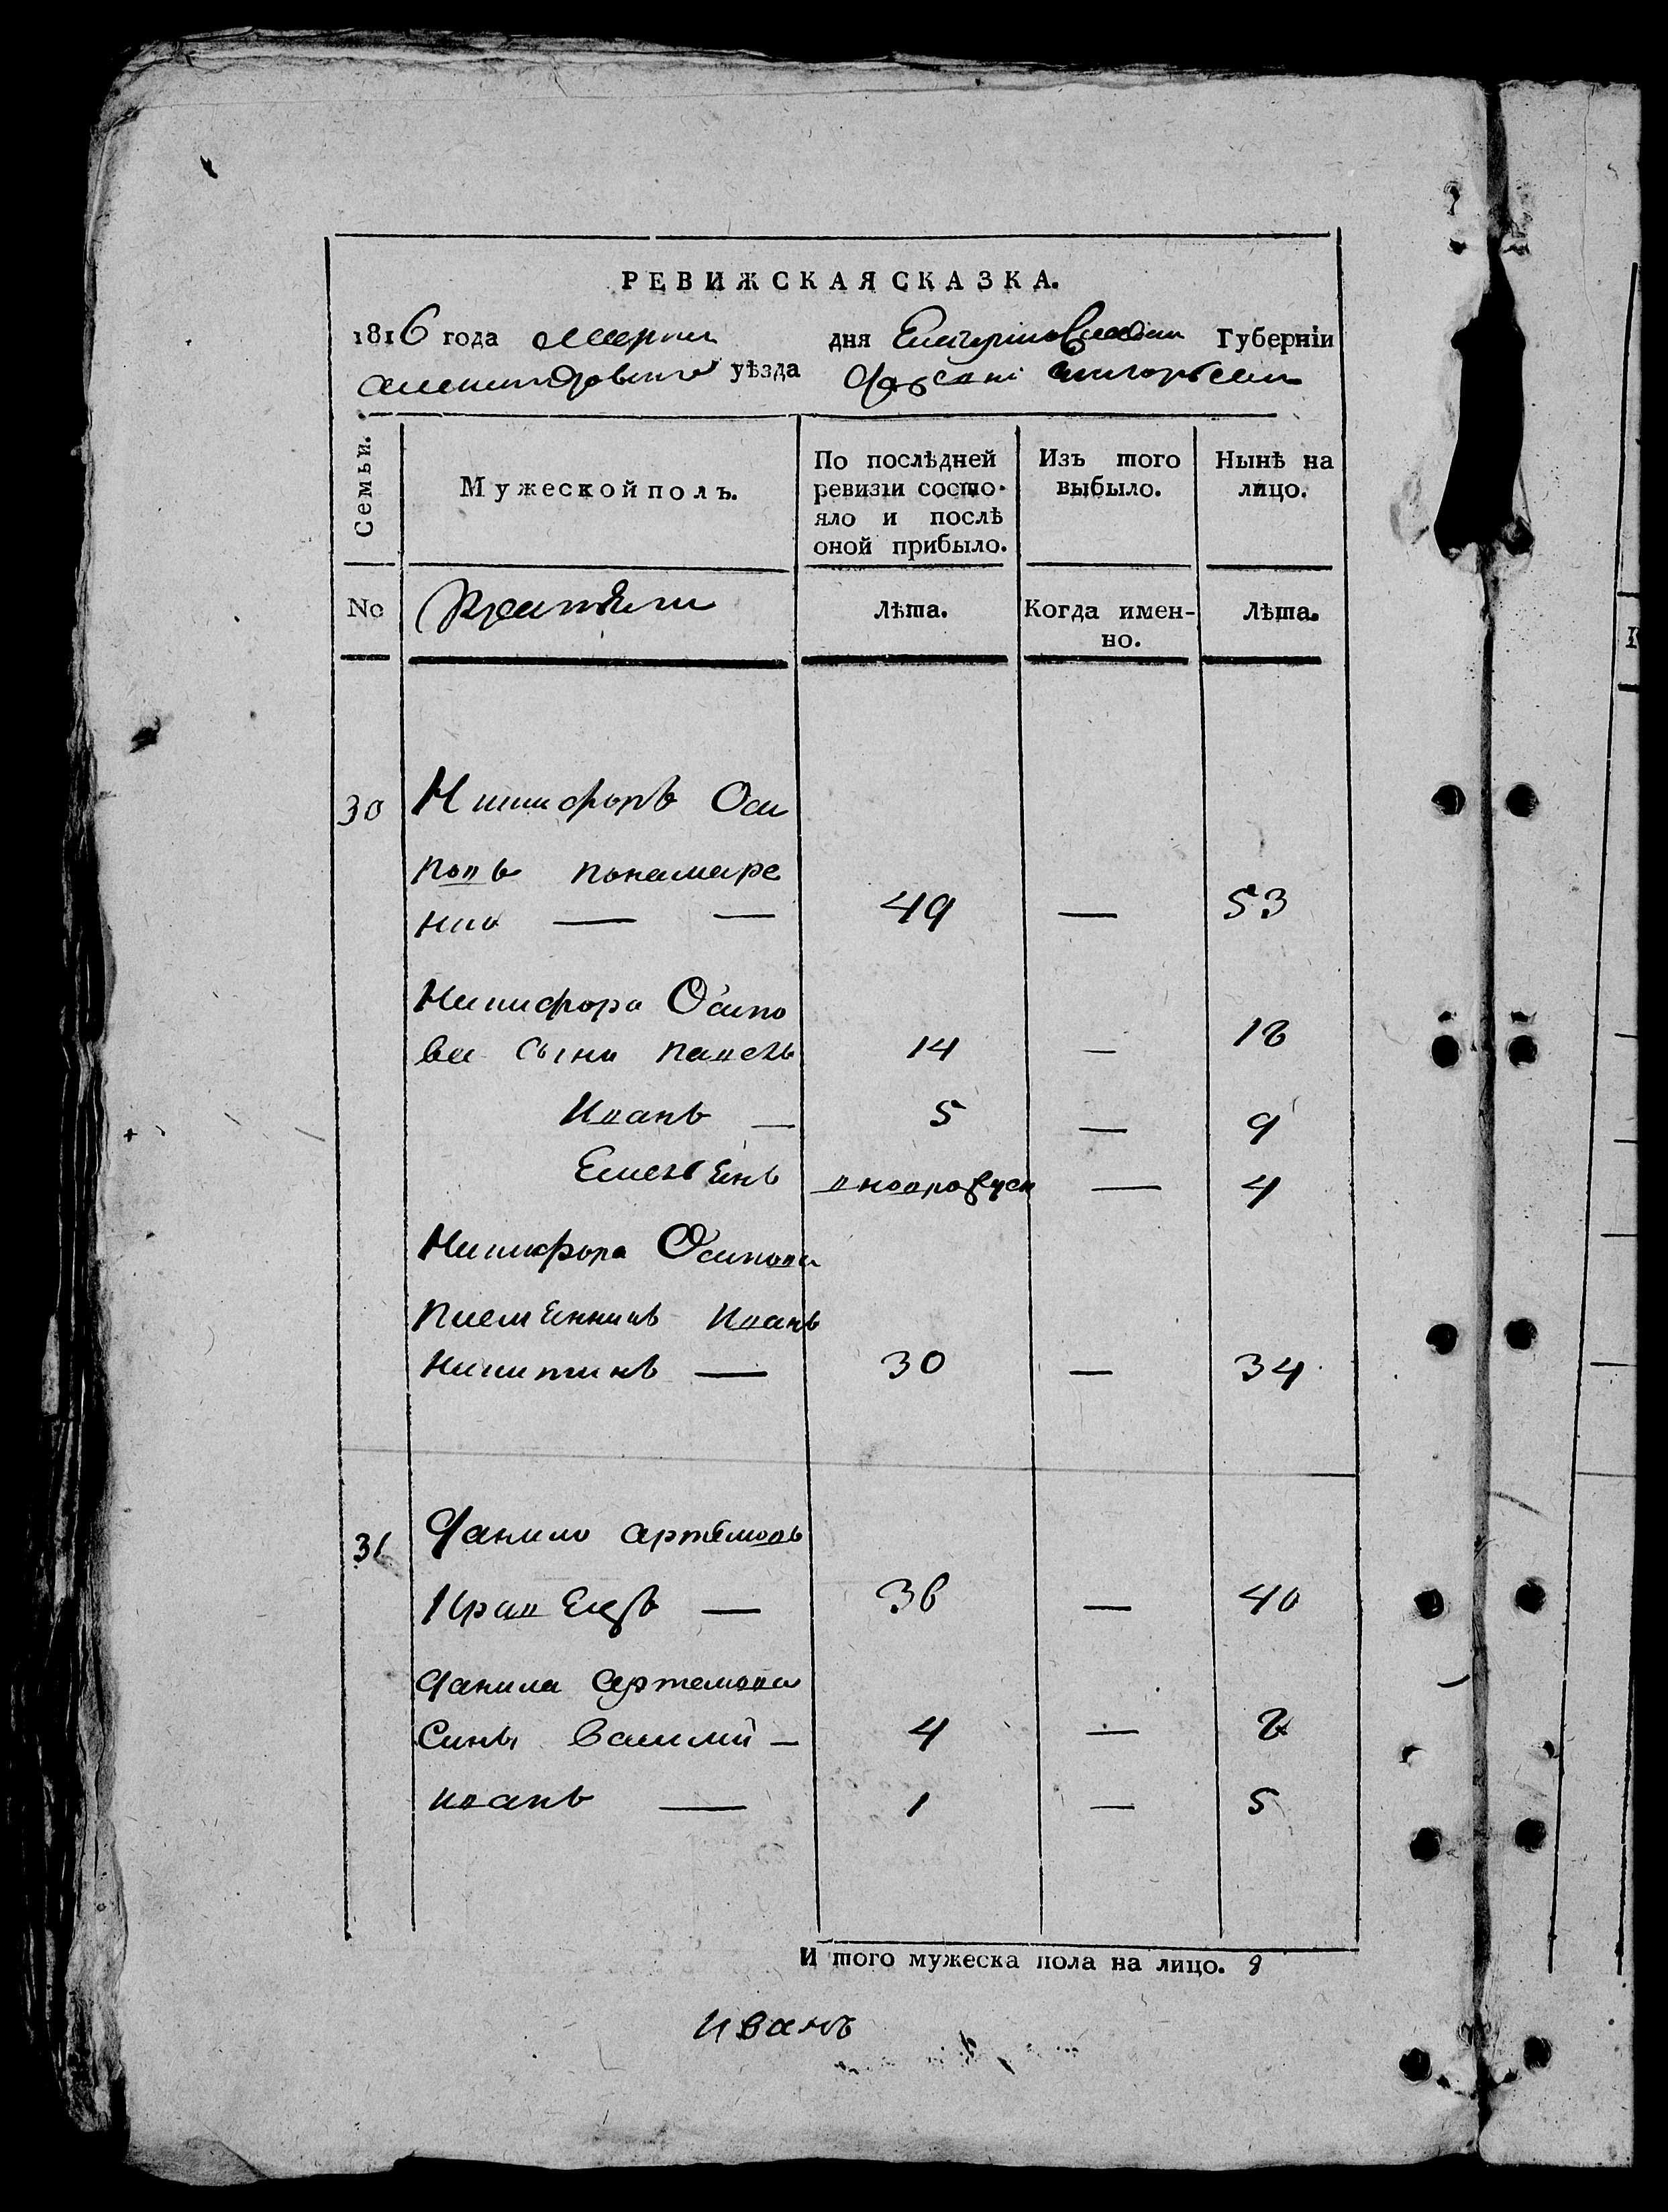 РЕВИЖСКАЯ СКАЗКА.
1816 года Марта дня Екатеринославской Губернїи
Александровского уѣзда
Семьи. Мужеской полъ. По послѣдней ревизїи состояло и послѣ оной прибыло. Изъ того выбыло. Нынѣ на лицо.
No Лѣта. Когда именно. Лѣта.
30 Никифоръ Оси
повъ Понамаре
нко — — 49 — 53
Никифора Осипо
ва сыни Павелъ 14 — 18
Иванъ — 5 — 9
Емельянъ — 4
Никифора Осипова
племенникъ Иванъ
Никитинъ — 30 — 34
31 Данило Артемовъ
Кравецъ — 36 — 40
Данила Артемова
сины Василий — 4 — 8
Иванъ — 1 — 5
И того мужеска пола на лицо. 8
Иванъ